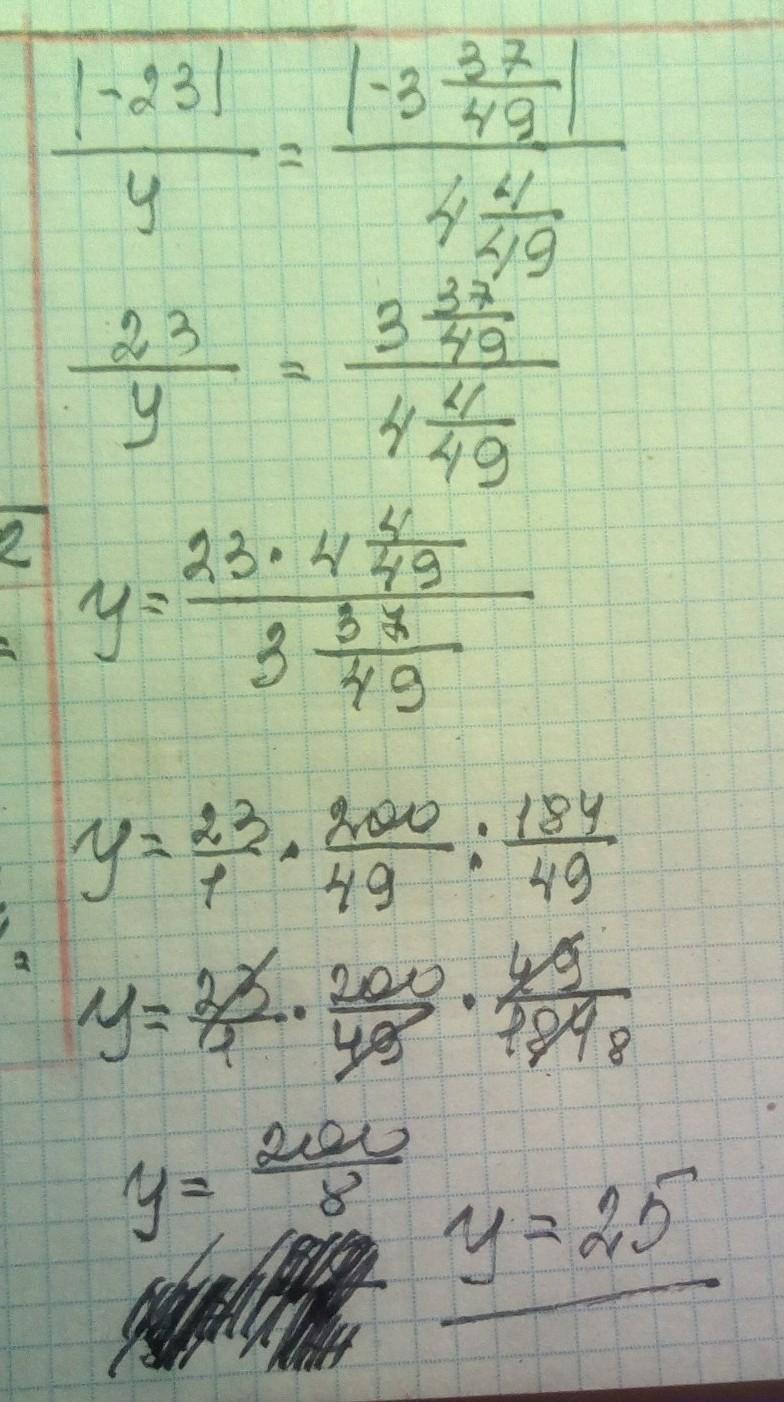 |-23| / y = |-3 37/49| / 4 4/49
23 / y = 3 37/49 / 4 4/49
y = 23 · 4 4/49 / 3 37/49
y = 23/1 · 200/49 : 184/49
y = 23/1 · 200/49 · 49/184 8
y = 200/8
y = 25
2
=